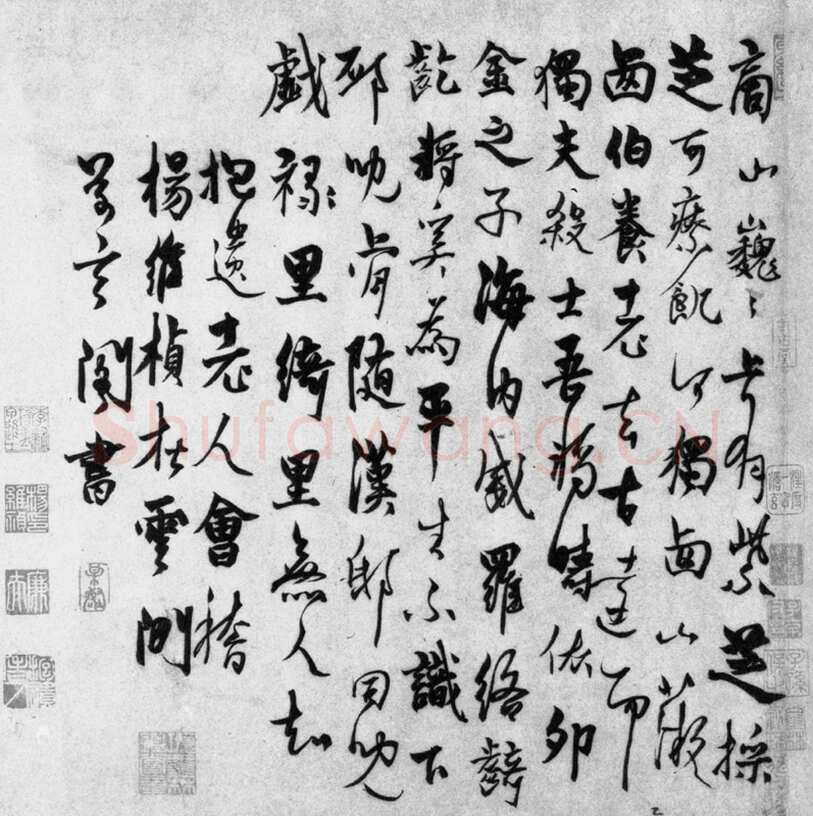 商山巍々上有紫芝採
芝可療飢何獨西山薇
西伯養老去古遠而
獨夫殺士吾將疇依卯
金之子海內威羅絡齮
齕將奚為平生不識下
邳叟肯隨漢邸同兒
戲祿里綺里無人知
抱遺老人會稽
楊維楨在雲間
草玄閣書
Shufawang.CN